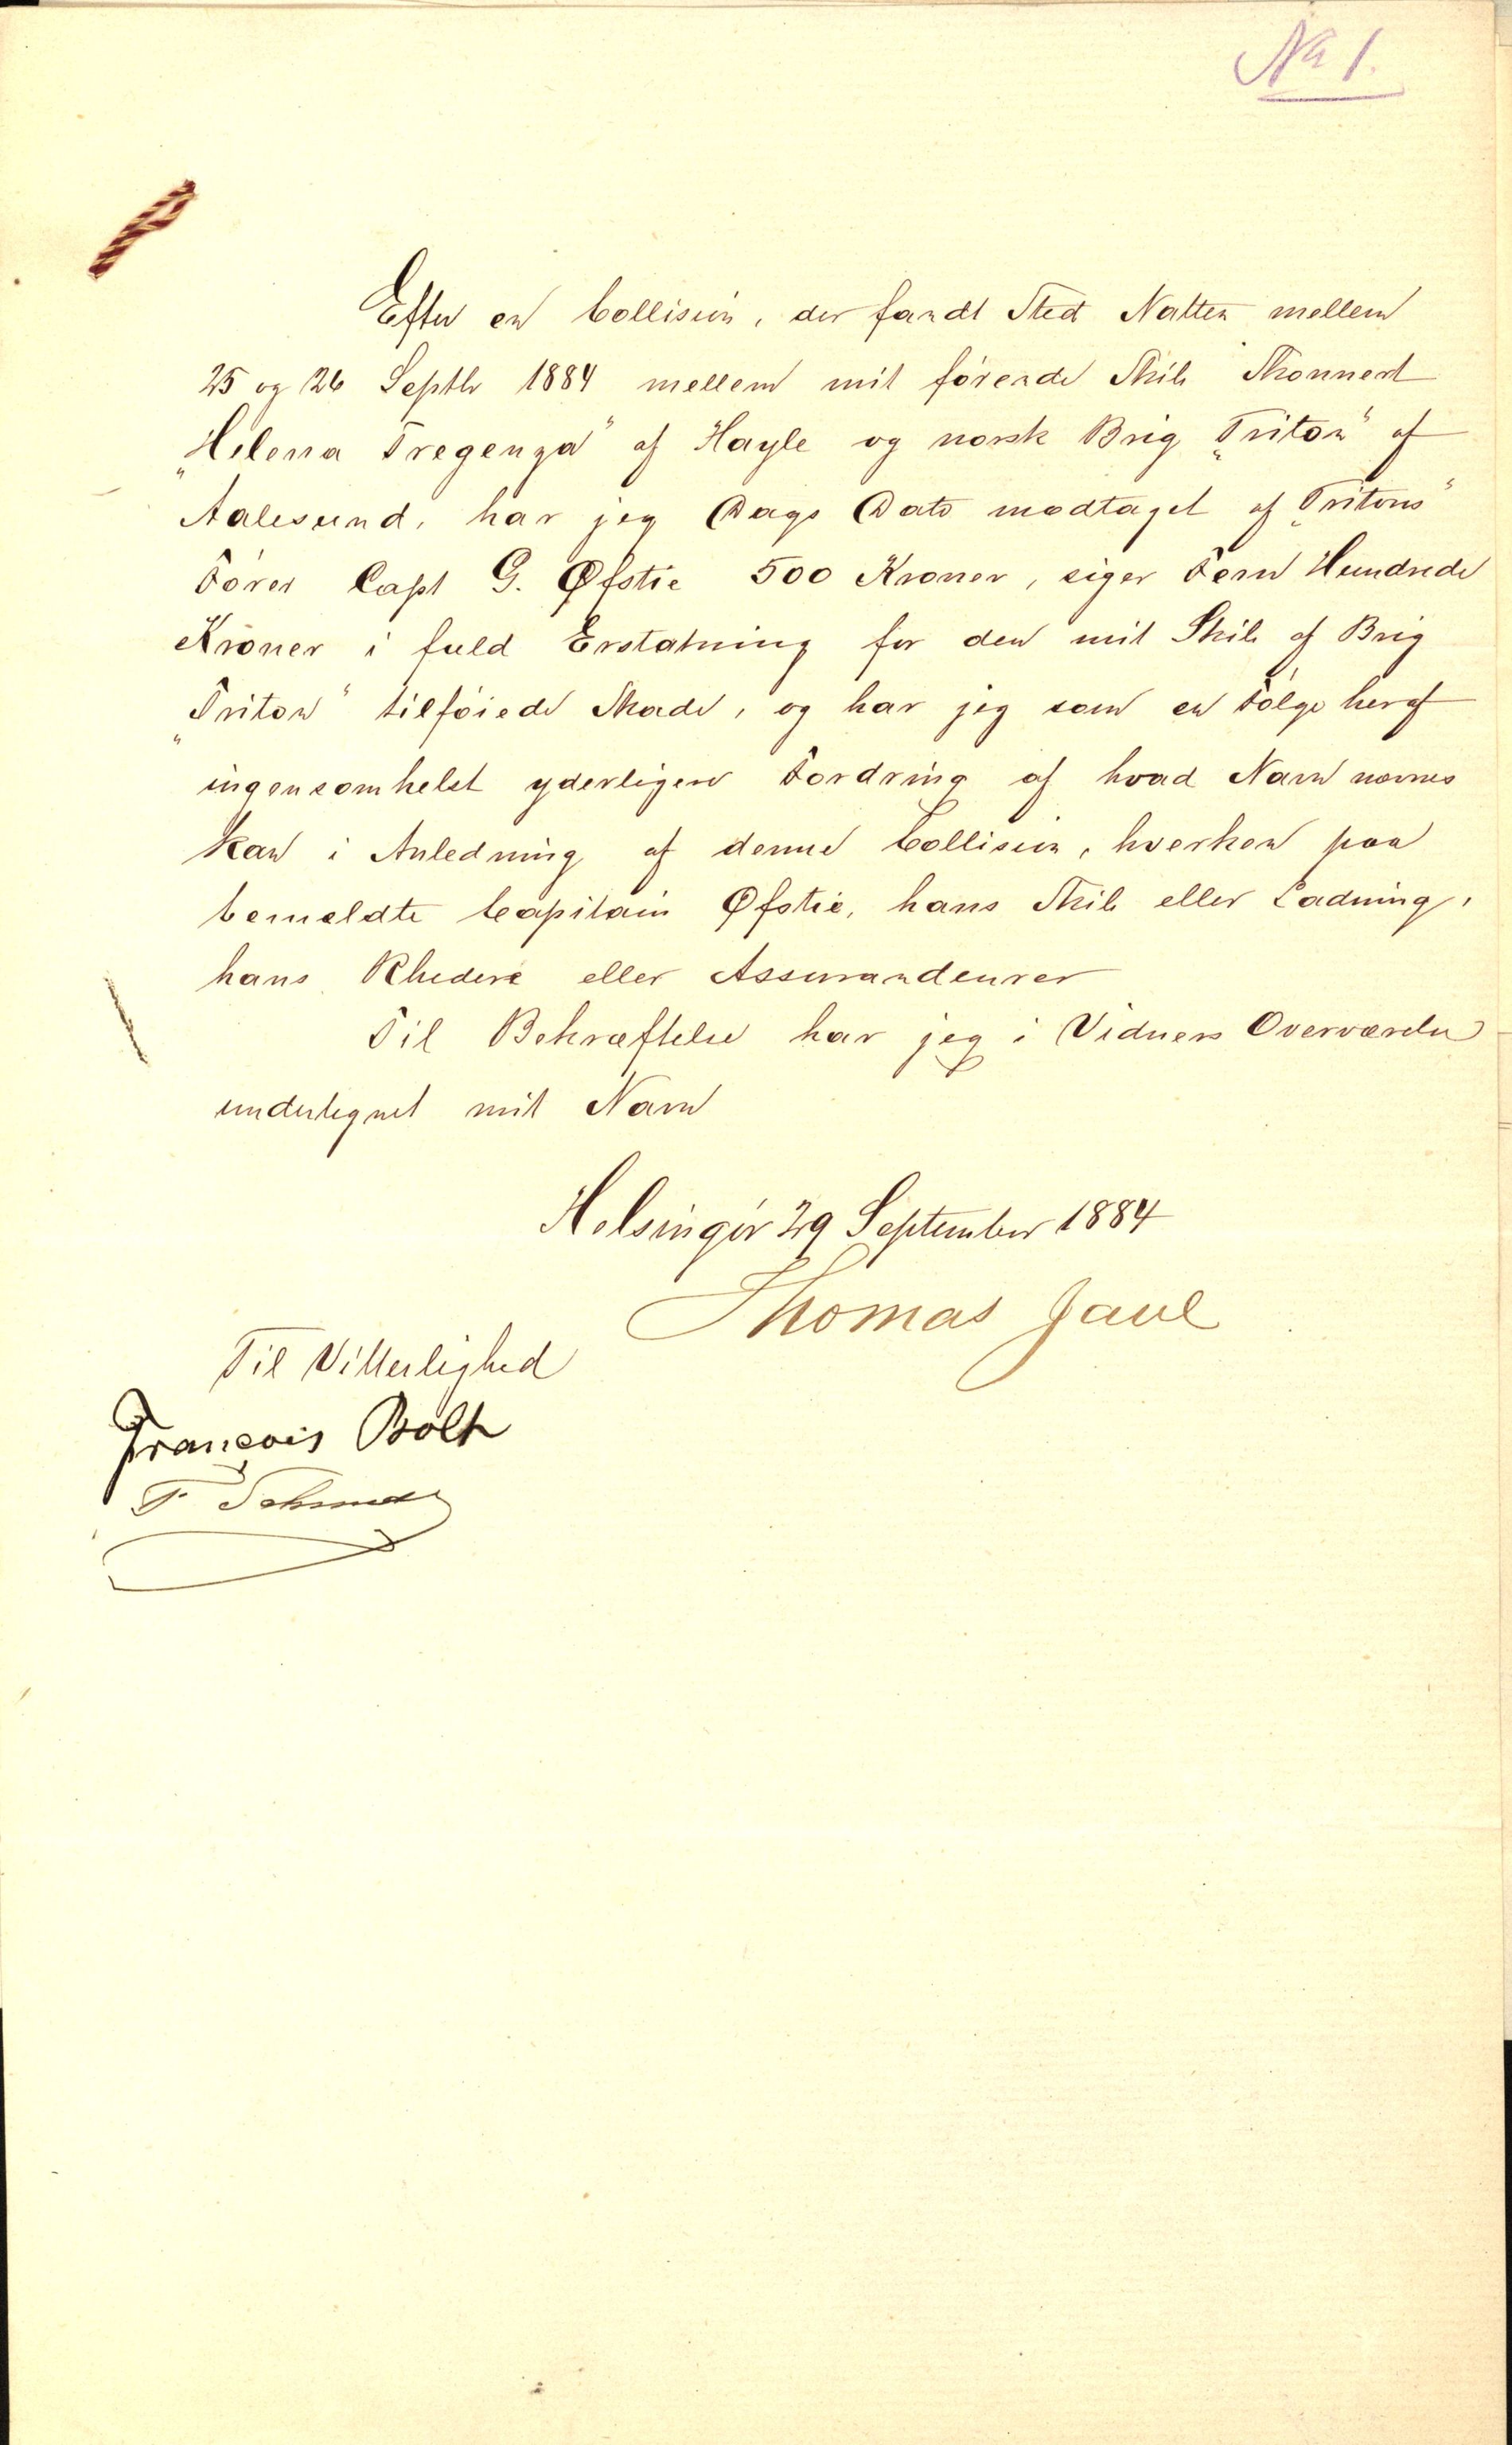 No 1.
Efter en Collision, der fandt Sted Natten mellem
25 og 26 Septbr 1884 mellem mit førende Skib Skonnert
„Helena Tregenza" af Hayle og norsk Brig „Triton" af
Aalesund, har jeg Dags Dato modtaget af „Tritons"
Fører Capt G. Øfstie 500 Kroner, siger Fem Hundrede
Kroner i fuld Erstatning for den mit Skib af Brig
„Triton" tilføiede Skade, og har jeg som en Følge heraf
ingensomhelst yderligere Fordring af hvad Navn nævnes
kan i Anledning af denne Collision, hverken paa
bemeldte Capitain Øfstie, hans Skib eller Ladning,
hans Rhedere eller Assurandeurer
Til Bekræftelse har jeg i Vidners Overværelse
undertegnet mit Navn
Helsingør 29 September 1884
Thomas Jaul
Til Vitterlighed
François Bolt
F